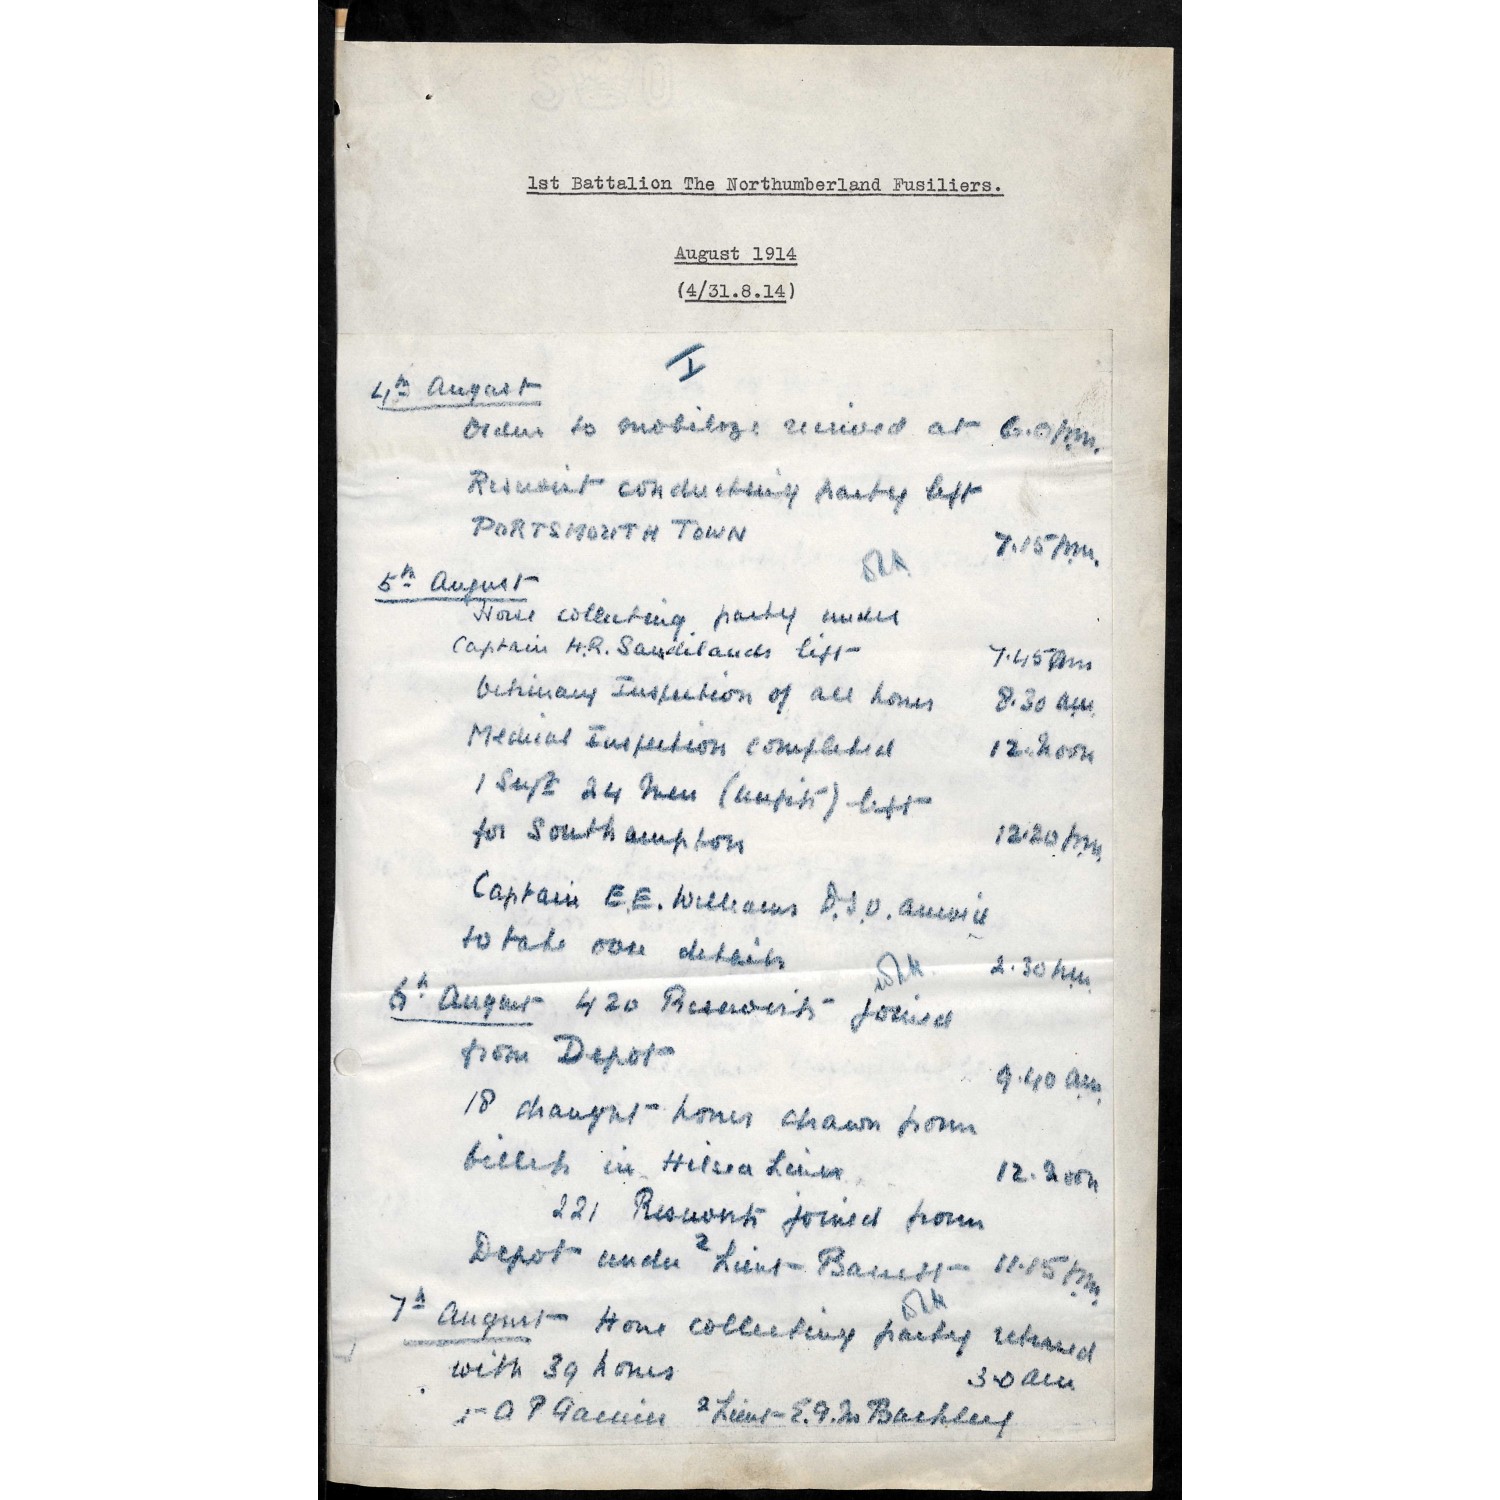 1st Battalion The Northumberland Fusiliers.
August 1914
(4/31.8.14)
I
4th August
Orders to mobilize received at 6.0 p.m.
Reservist conducting party left
PORTSMOUTH TOWN 7.15 p.m.
5th August
Horse collecting party under
Captain H.R. Sandilands left 7.45 am
Vetinary Inspection of all horses 8.30 am.
Medical Inspection completed 12. Noon
1 Sergt 24 Men left
for Southampton 12.20 p.m.
Captain E.E. Williams D.S.O. arrived
to take over details 2.30 p.m.
6th August 420 Reservists joined
from Depot 9.40 am.
18 draught horses drawn from
billets in Hilsea Lines 12. Noon
221 Reservists joined from
Depot under 2 Lieut Barrett 11.15 p.m.
7th August Horse collecting party returned
with 39 horses 3.0 am
A P Garnier 2 Lieut